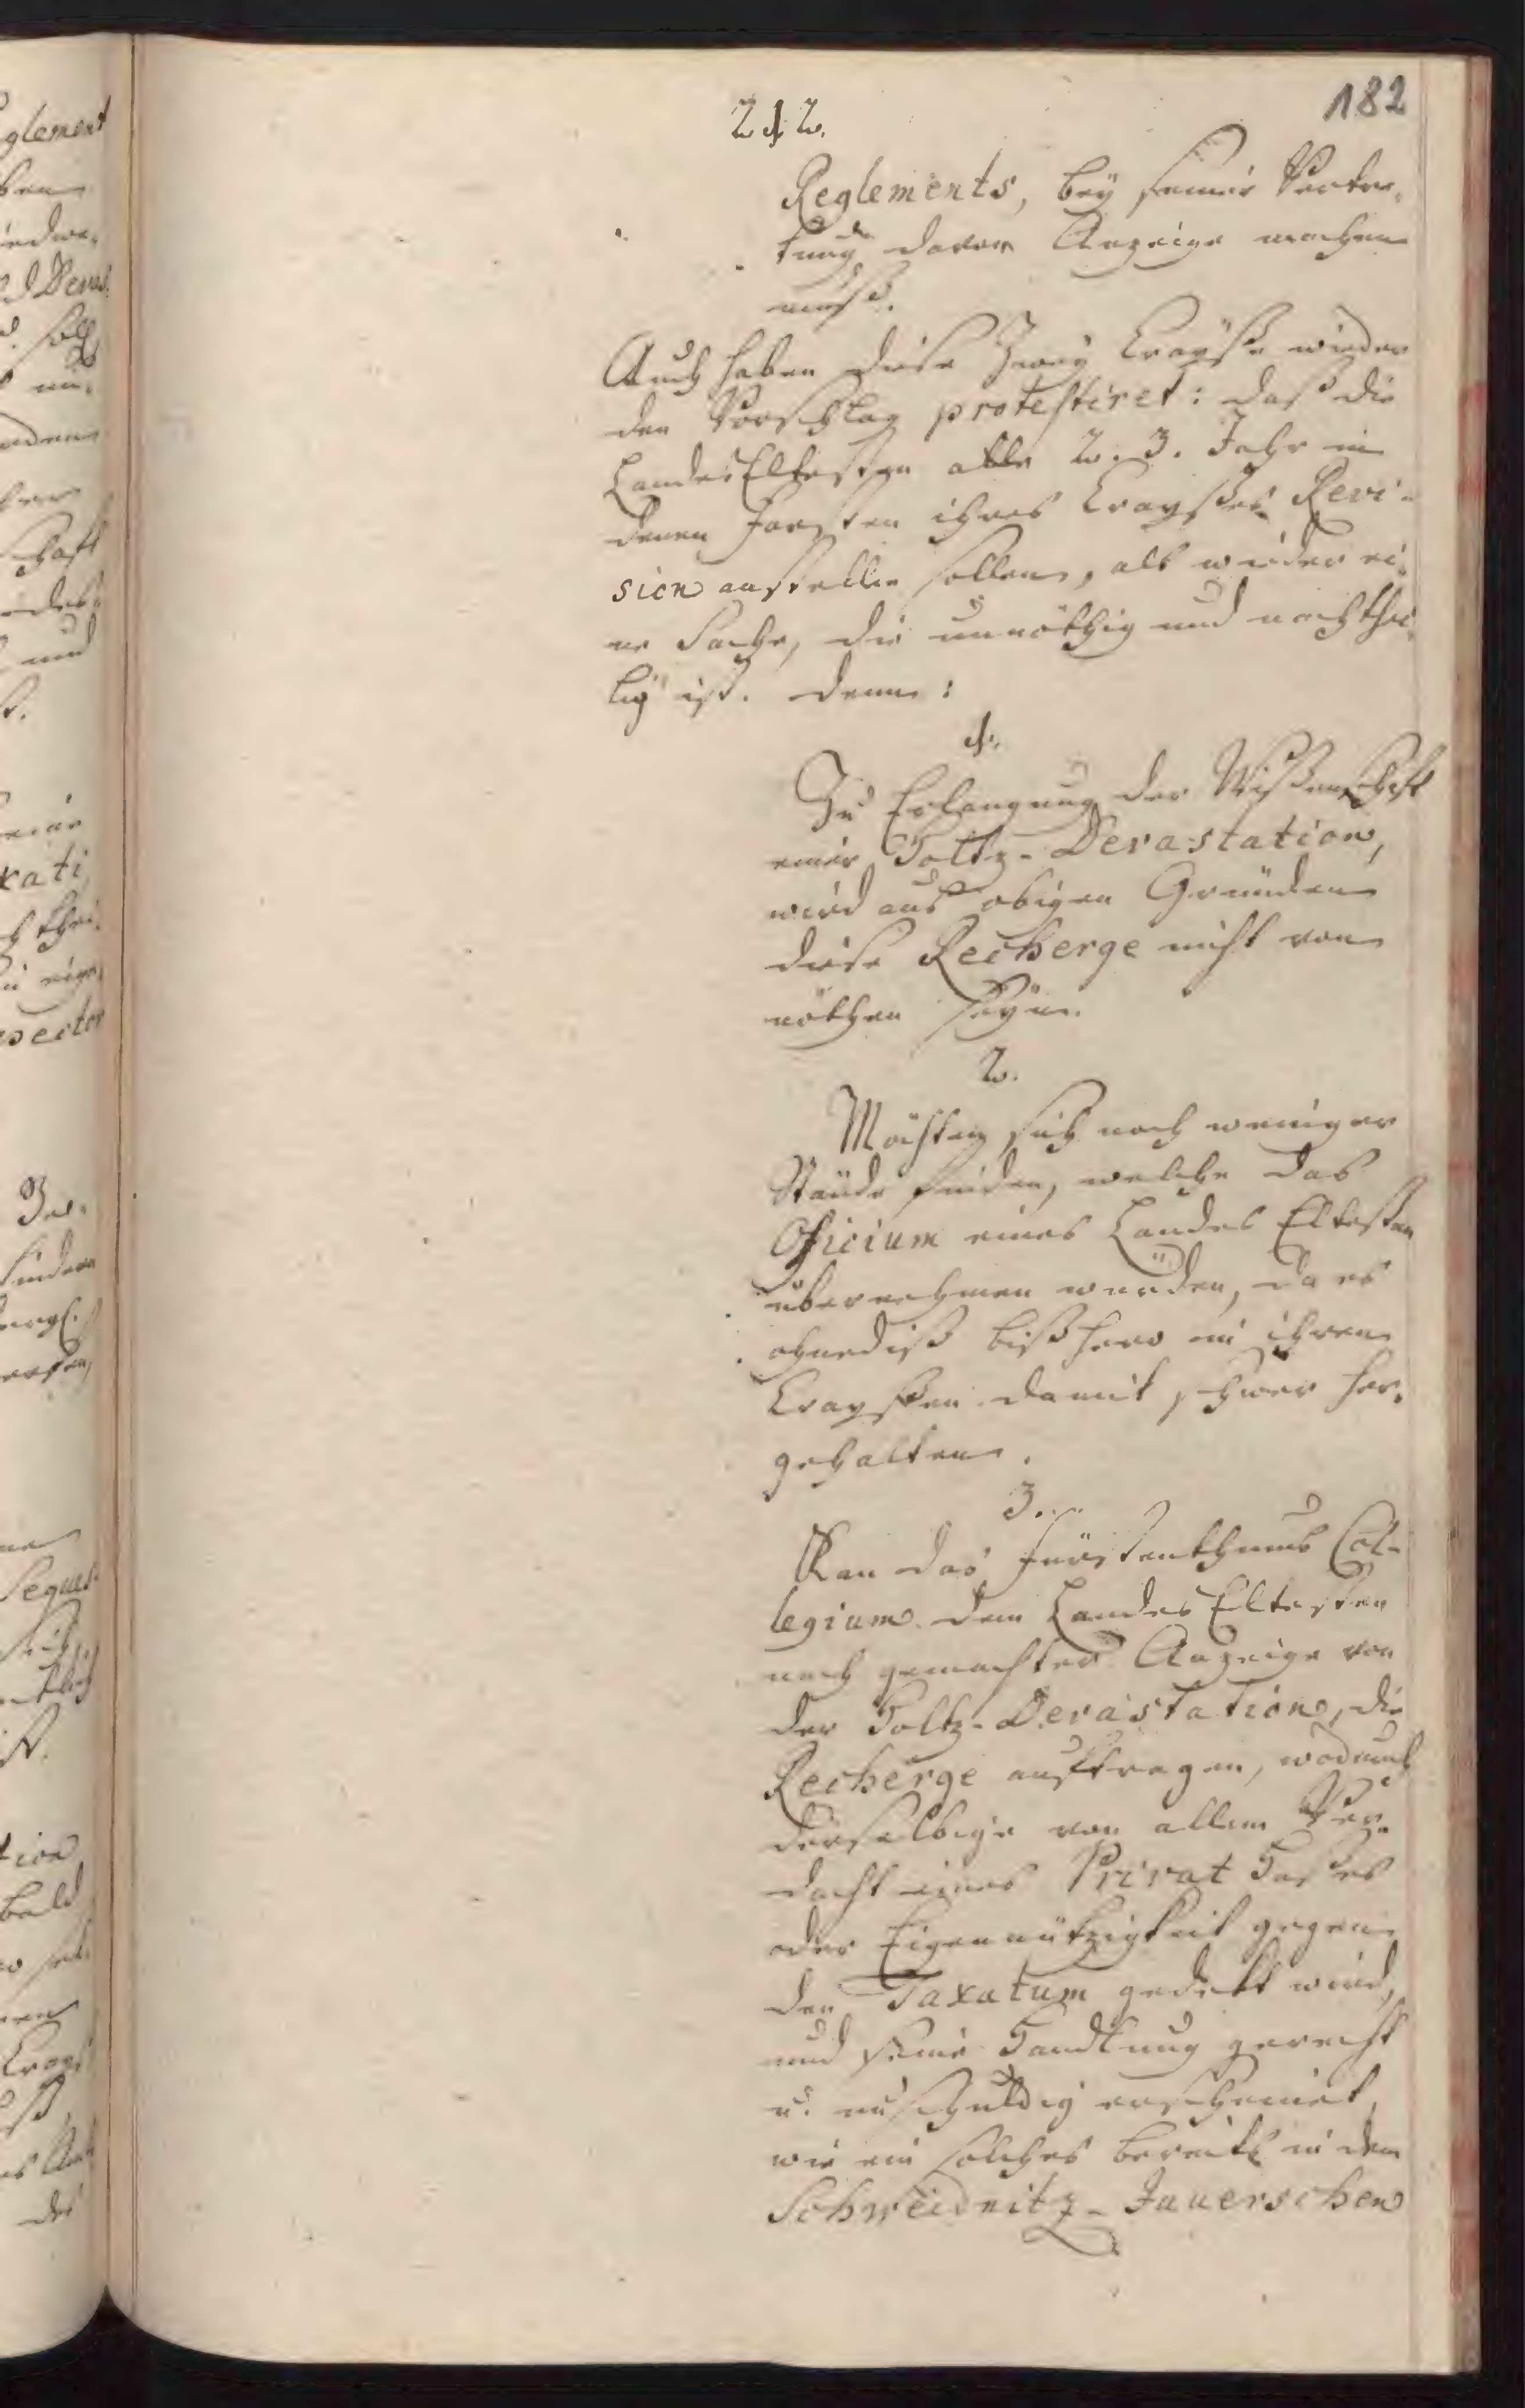 182
212.
Reglements, bey seiner Vertre¬
tung davon Anzeige machen
muß.
Auch haben diese Zwey Crayße wieder
den Vorschlag protestiret: daß die
Landes Eltesten alle 2. 3. Jahr in
denen Forsten ihres Crayßes Revi-
sion anstellen sollen, als wieder ei¬
ne Sache, die unnöthig und nachthei¬
lig ist. denn:
1.
Zu Erlangung der Wißenschaft
einer Holtz-Devastation,
wird aus obigen Gründen
diese Recherge nicht von
nöthen seyn.
2.
Möchten sich noch weniger
Stände finden, welche das
Officium eines Landes Eltesten
übernehmen würden, da es
ohnediß bißhero in ihren
Crayßen damit schwer her¬
gehalten.
3.
Kan das Fürstenthums Col-
legium dem Landes Eltesten
nach gemachter Anzeige von
der Holtz-Devastation, die
Recherge auftragen, wodurch
derselbige von allem Ver¬
dacht eines Privat Haßes
oder Eigennützigkeit gegen
den Taxatum gedekt wird,
und seine Handlung gerecht
u. unschuldig erscheinet,
wie ein solches bereits in dem
Schweidnitz-Jauerschen